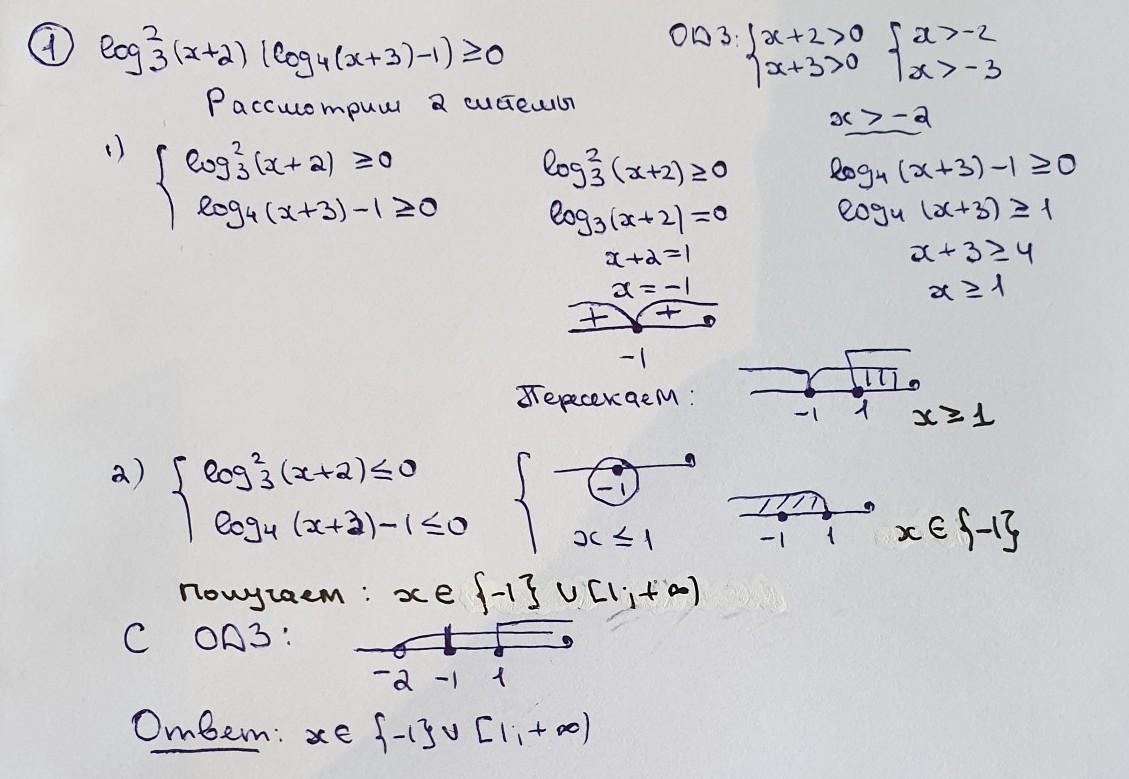 ① log²₃(x+2) (log₄(x+3)-1) ≥ 0
ОДЗ: { x+2>0 { x>-2
x+3>0 x>-3
x > -2
Рассмотрим 2 системы
1) { log²₃(x+2) ≥ 0
log₄(x+3)-1 ≥ 0
log²₃(x+2) ≥ 0
log₃(x+2) = 0
x+2=1
x = -1
+ +
-1
log₄(x+3)-1 ≥ 0
log₄(x+3) ≥ 1
x+3 ≥ 4
x ≥ 1
Пересекаем:
-1 1 x ≥ 1
2) { log²₃(x+2) ≤ 0 { -1
log₄(x+3)-1 ≤ 0 x ≤ 1
-1 1 x ∈ {-1}
Получаем: x ∈ {-1} ∪ [1;+∞)
С ОДЗ:
-2 -1 1
Ответ: x ∈ {-1} ∪ [1;+∞)